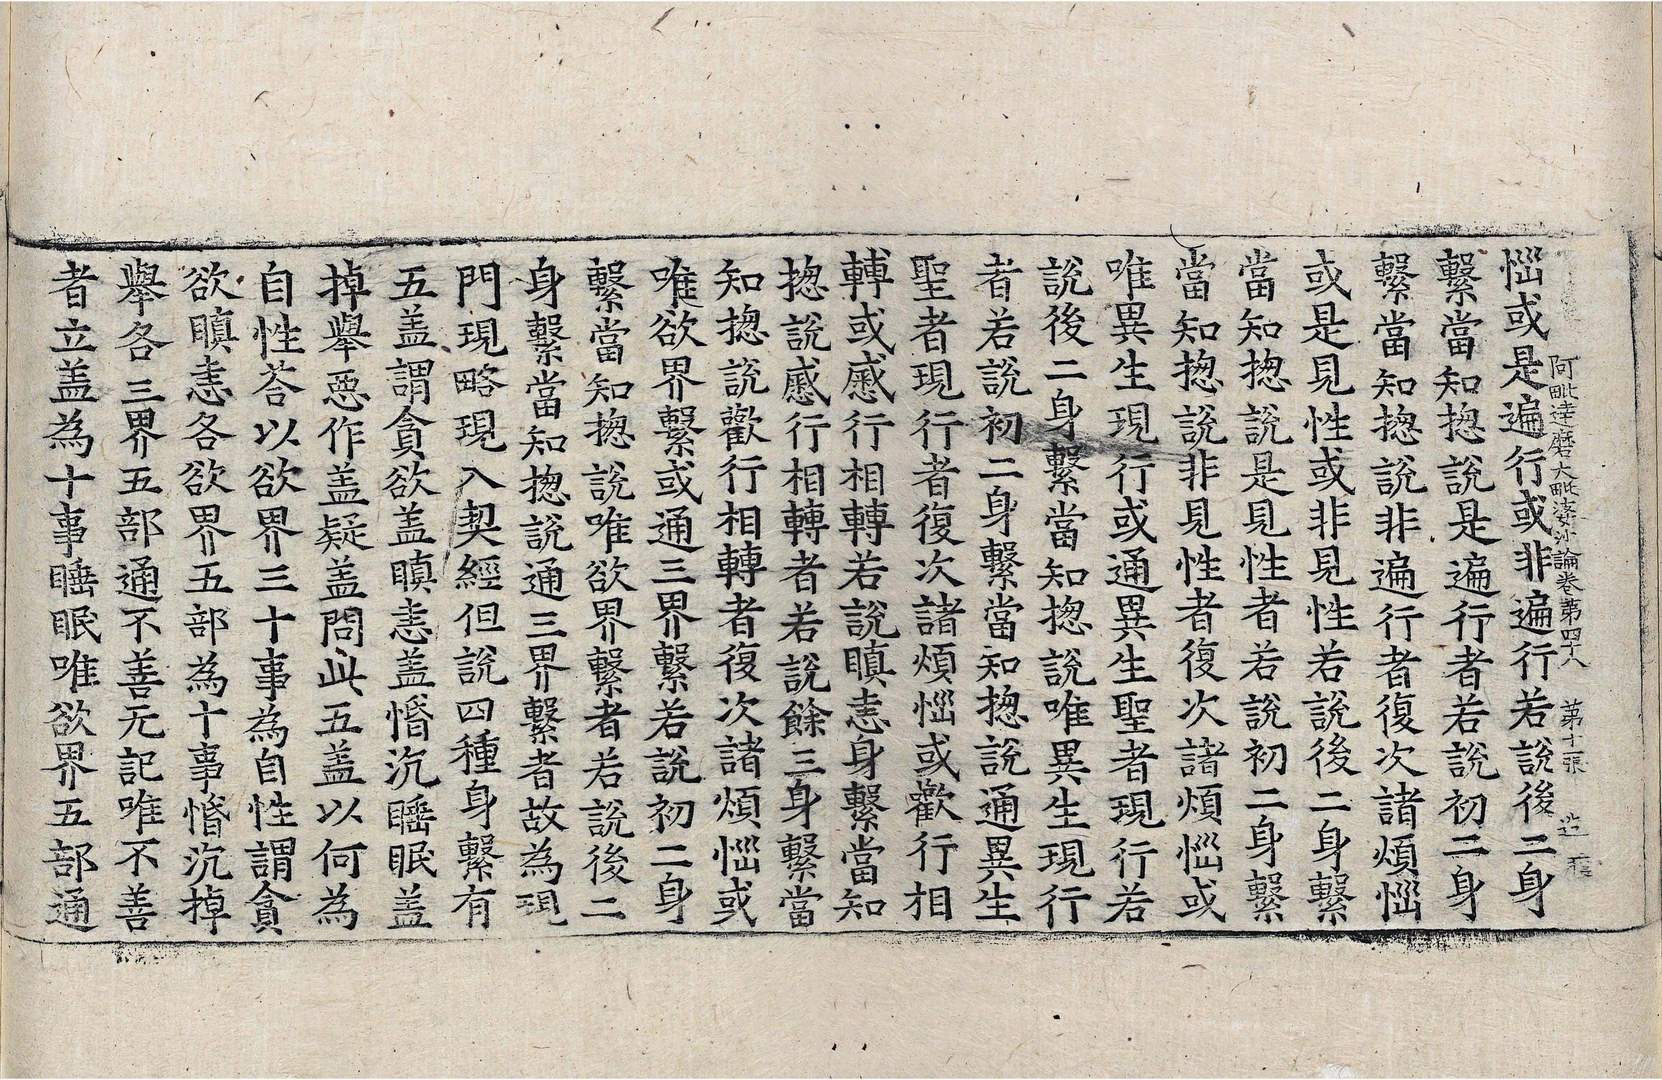 阿毗達磨大毗婆沙論卷第四十八　第十張　造
惱或是遍行或非遍行若說後二身
繫當知揔說是遍行者若說初二身
繫當知揔說非遍行者復次諸煩惱
或是見性或非見性若說後二身繫
當知揔說是見性者若說初二身繫
當知揔說非見性者復次諸煩惱或
唯異生現行或通異生聖者現行若
說後二身繫當知揔說唯異生現行
者若說初二身繫當知揔說通異生
聖者現行者復次諸煩惱或歡行相
轉或慼行相轉若說瞋恚身繫當知
揔說慼行相轉者若說餘三身繫當
知揔說歡行相轉者復次諸煩惱或
唯欲界繫或通三界繫若說初二身
繫當知揔說唯欲界繫者若說後二
身繫當知揔說通三界繫者故為現
門現略現入契經但說四種身繫有
五盖謂貪欲盖瞋恚盖惛沉睡眠盖
掉舉惡作盖疑盖問此五盖以何為
自性荅以欲界三十事為自性謂貪
欲瞋恚各欲界五部為十事惛沉掉
舉各三界五部通不善无記唯不善
者立盖為十事睡眠唯欲界五部通